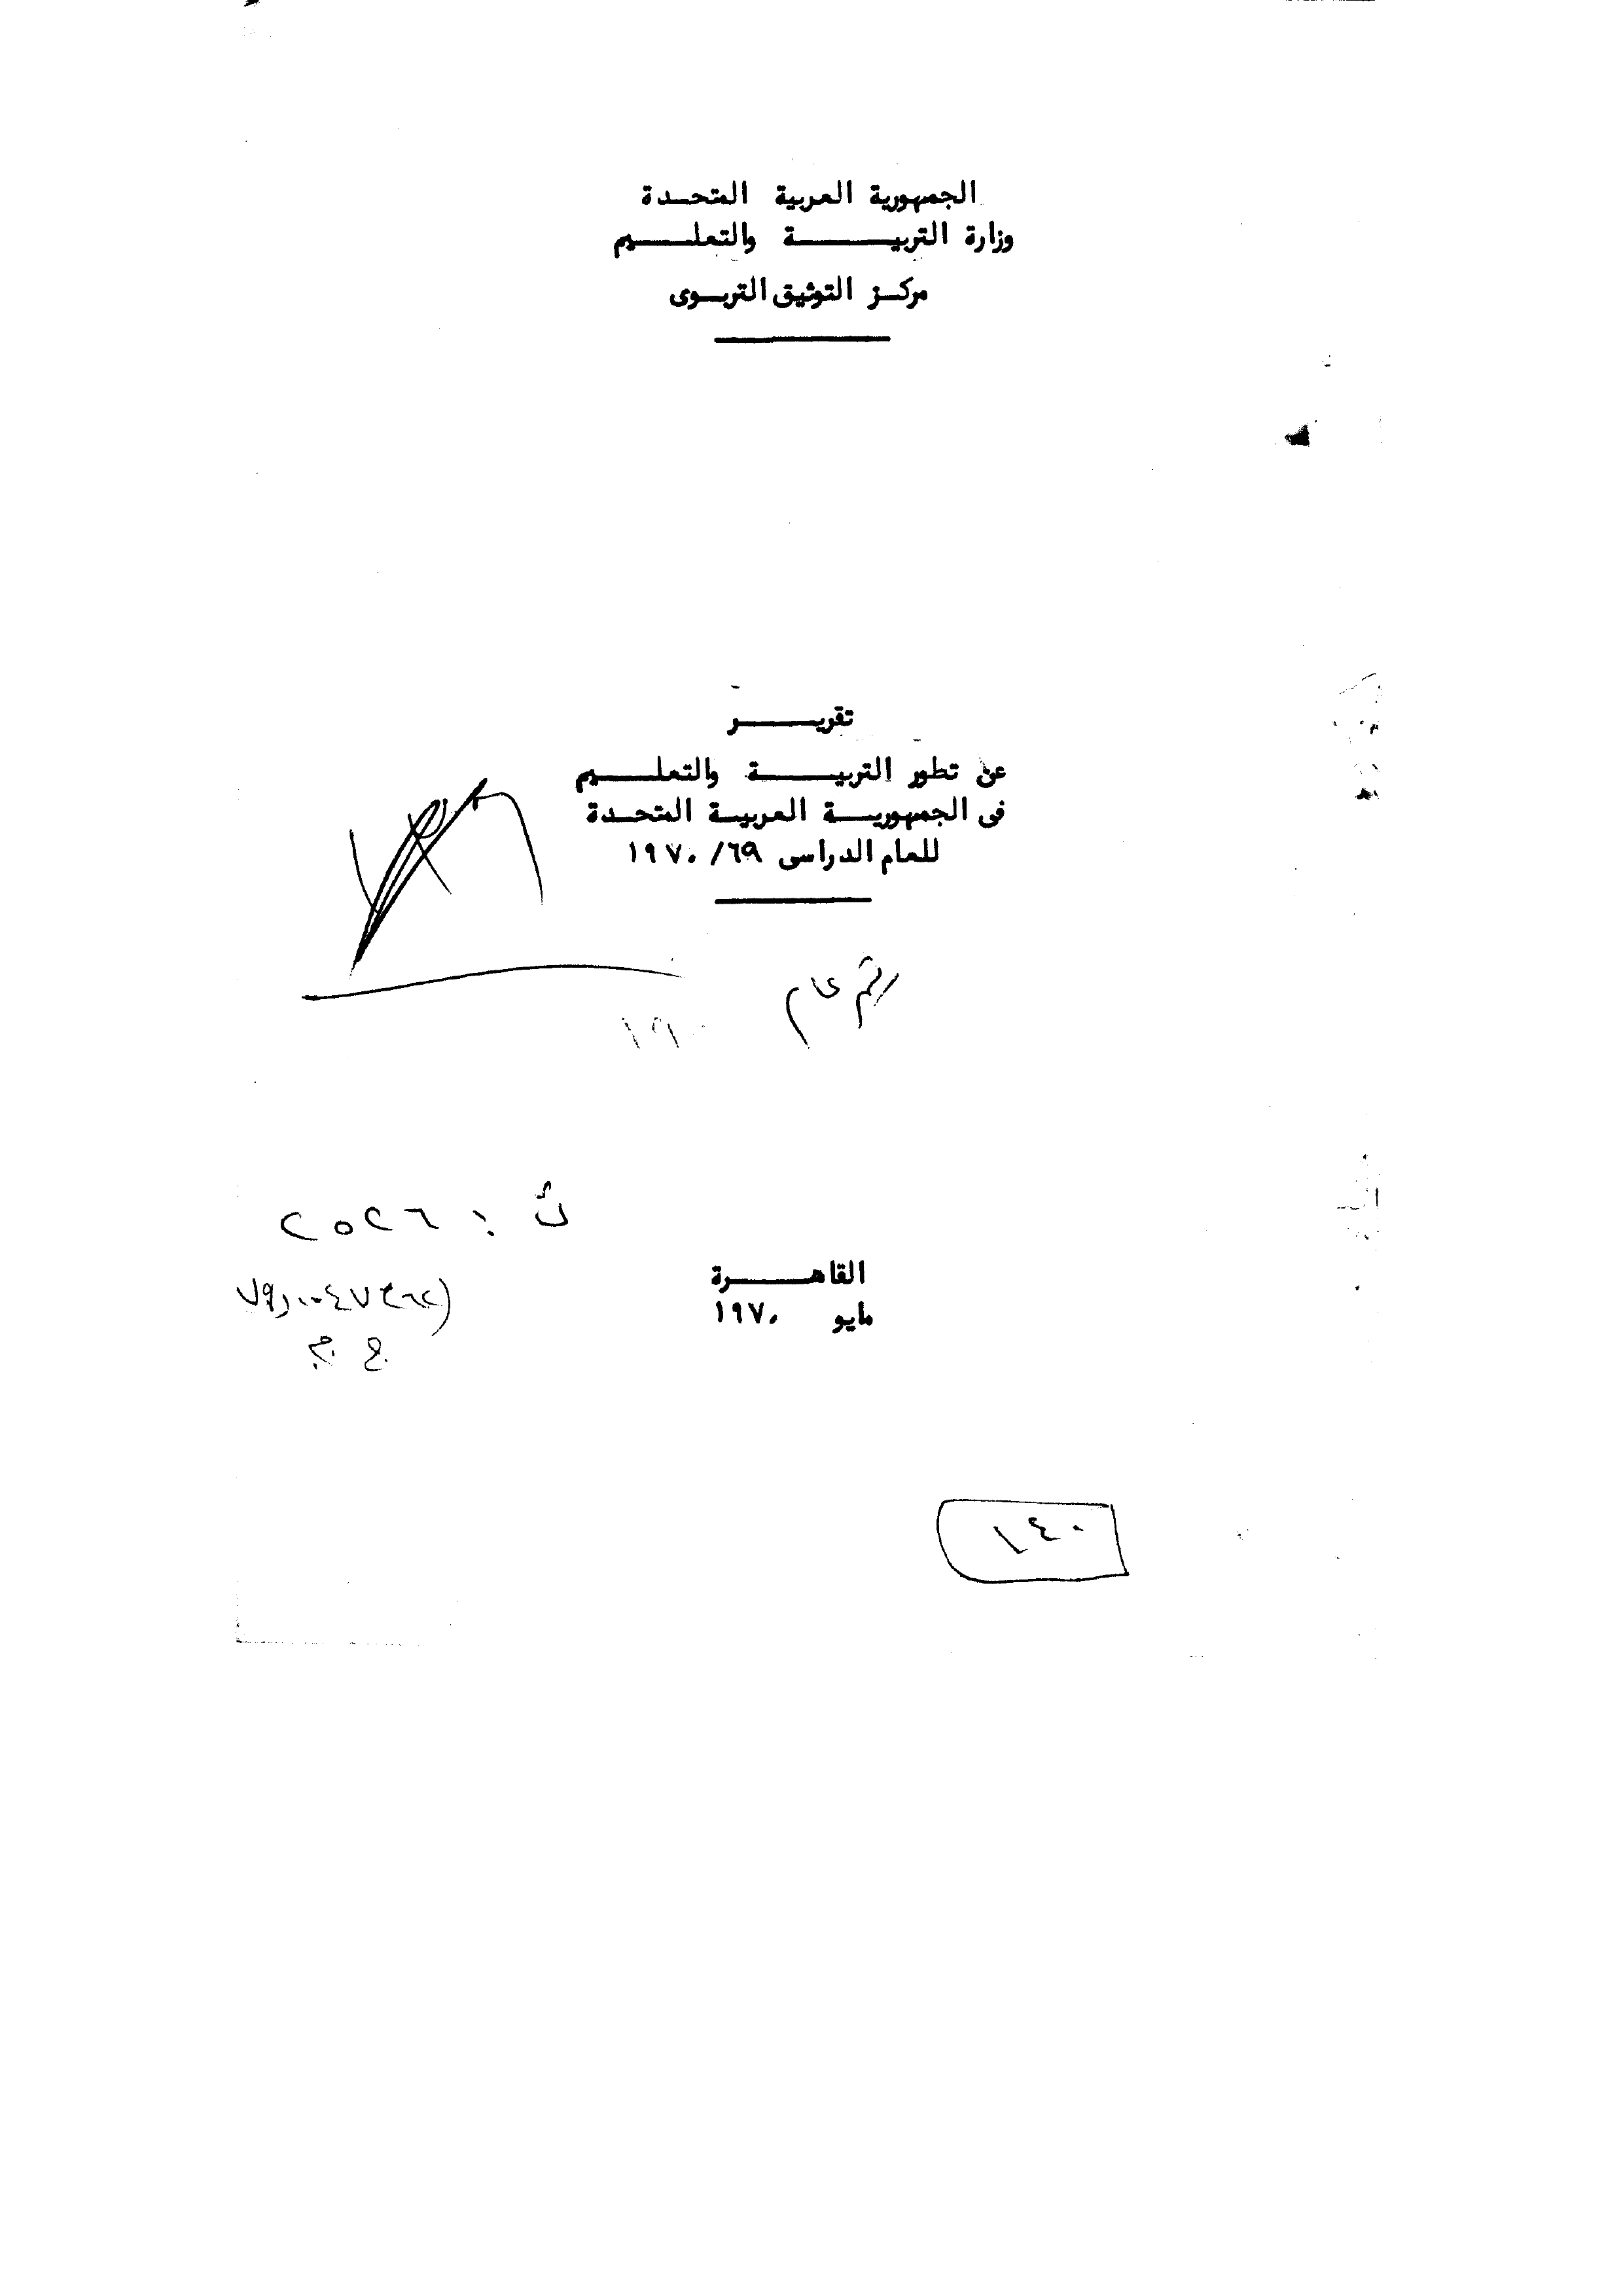 الجمهورية العربية المتحدة
وزارة التربية والتعليم
مركز التوثيق التربوى
تقرير
عن تطور التربية والتعليم
فى الجمهورية العربية المتحدة
للعام الدراسى ٦٩/ ١٩٧٠
رقم عام
ث : ٢٥٢٦
القاهرة
مايو ١٩٧٠
١٤٠